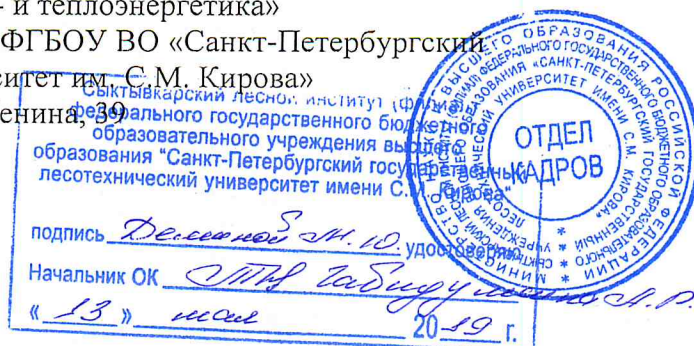 и теплоэнергетика»
ФГБОУ ВО «Санкт-Петербургский
ситет им. С.М. Кирова»
енина, 39
Сыктывкарский лесной институт (филиал)
федерального государственного бюджетного
образовательного учреждения высшего
образования "Санкт-Петербургский государственный
лесотехнический университет имени С.М. Кирова"
подпись Деминой М. Ю. удостоверяю
Начальник ОК Габидуллина А. Р.
« 13 » мая 2019 г.
ОТДЕЛ
КАДРОВ
ВЫСШЕГО ОБРАЗОВАНИЯ РОССИЙСКОЙ ФЕДЕРАЦИИ